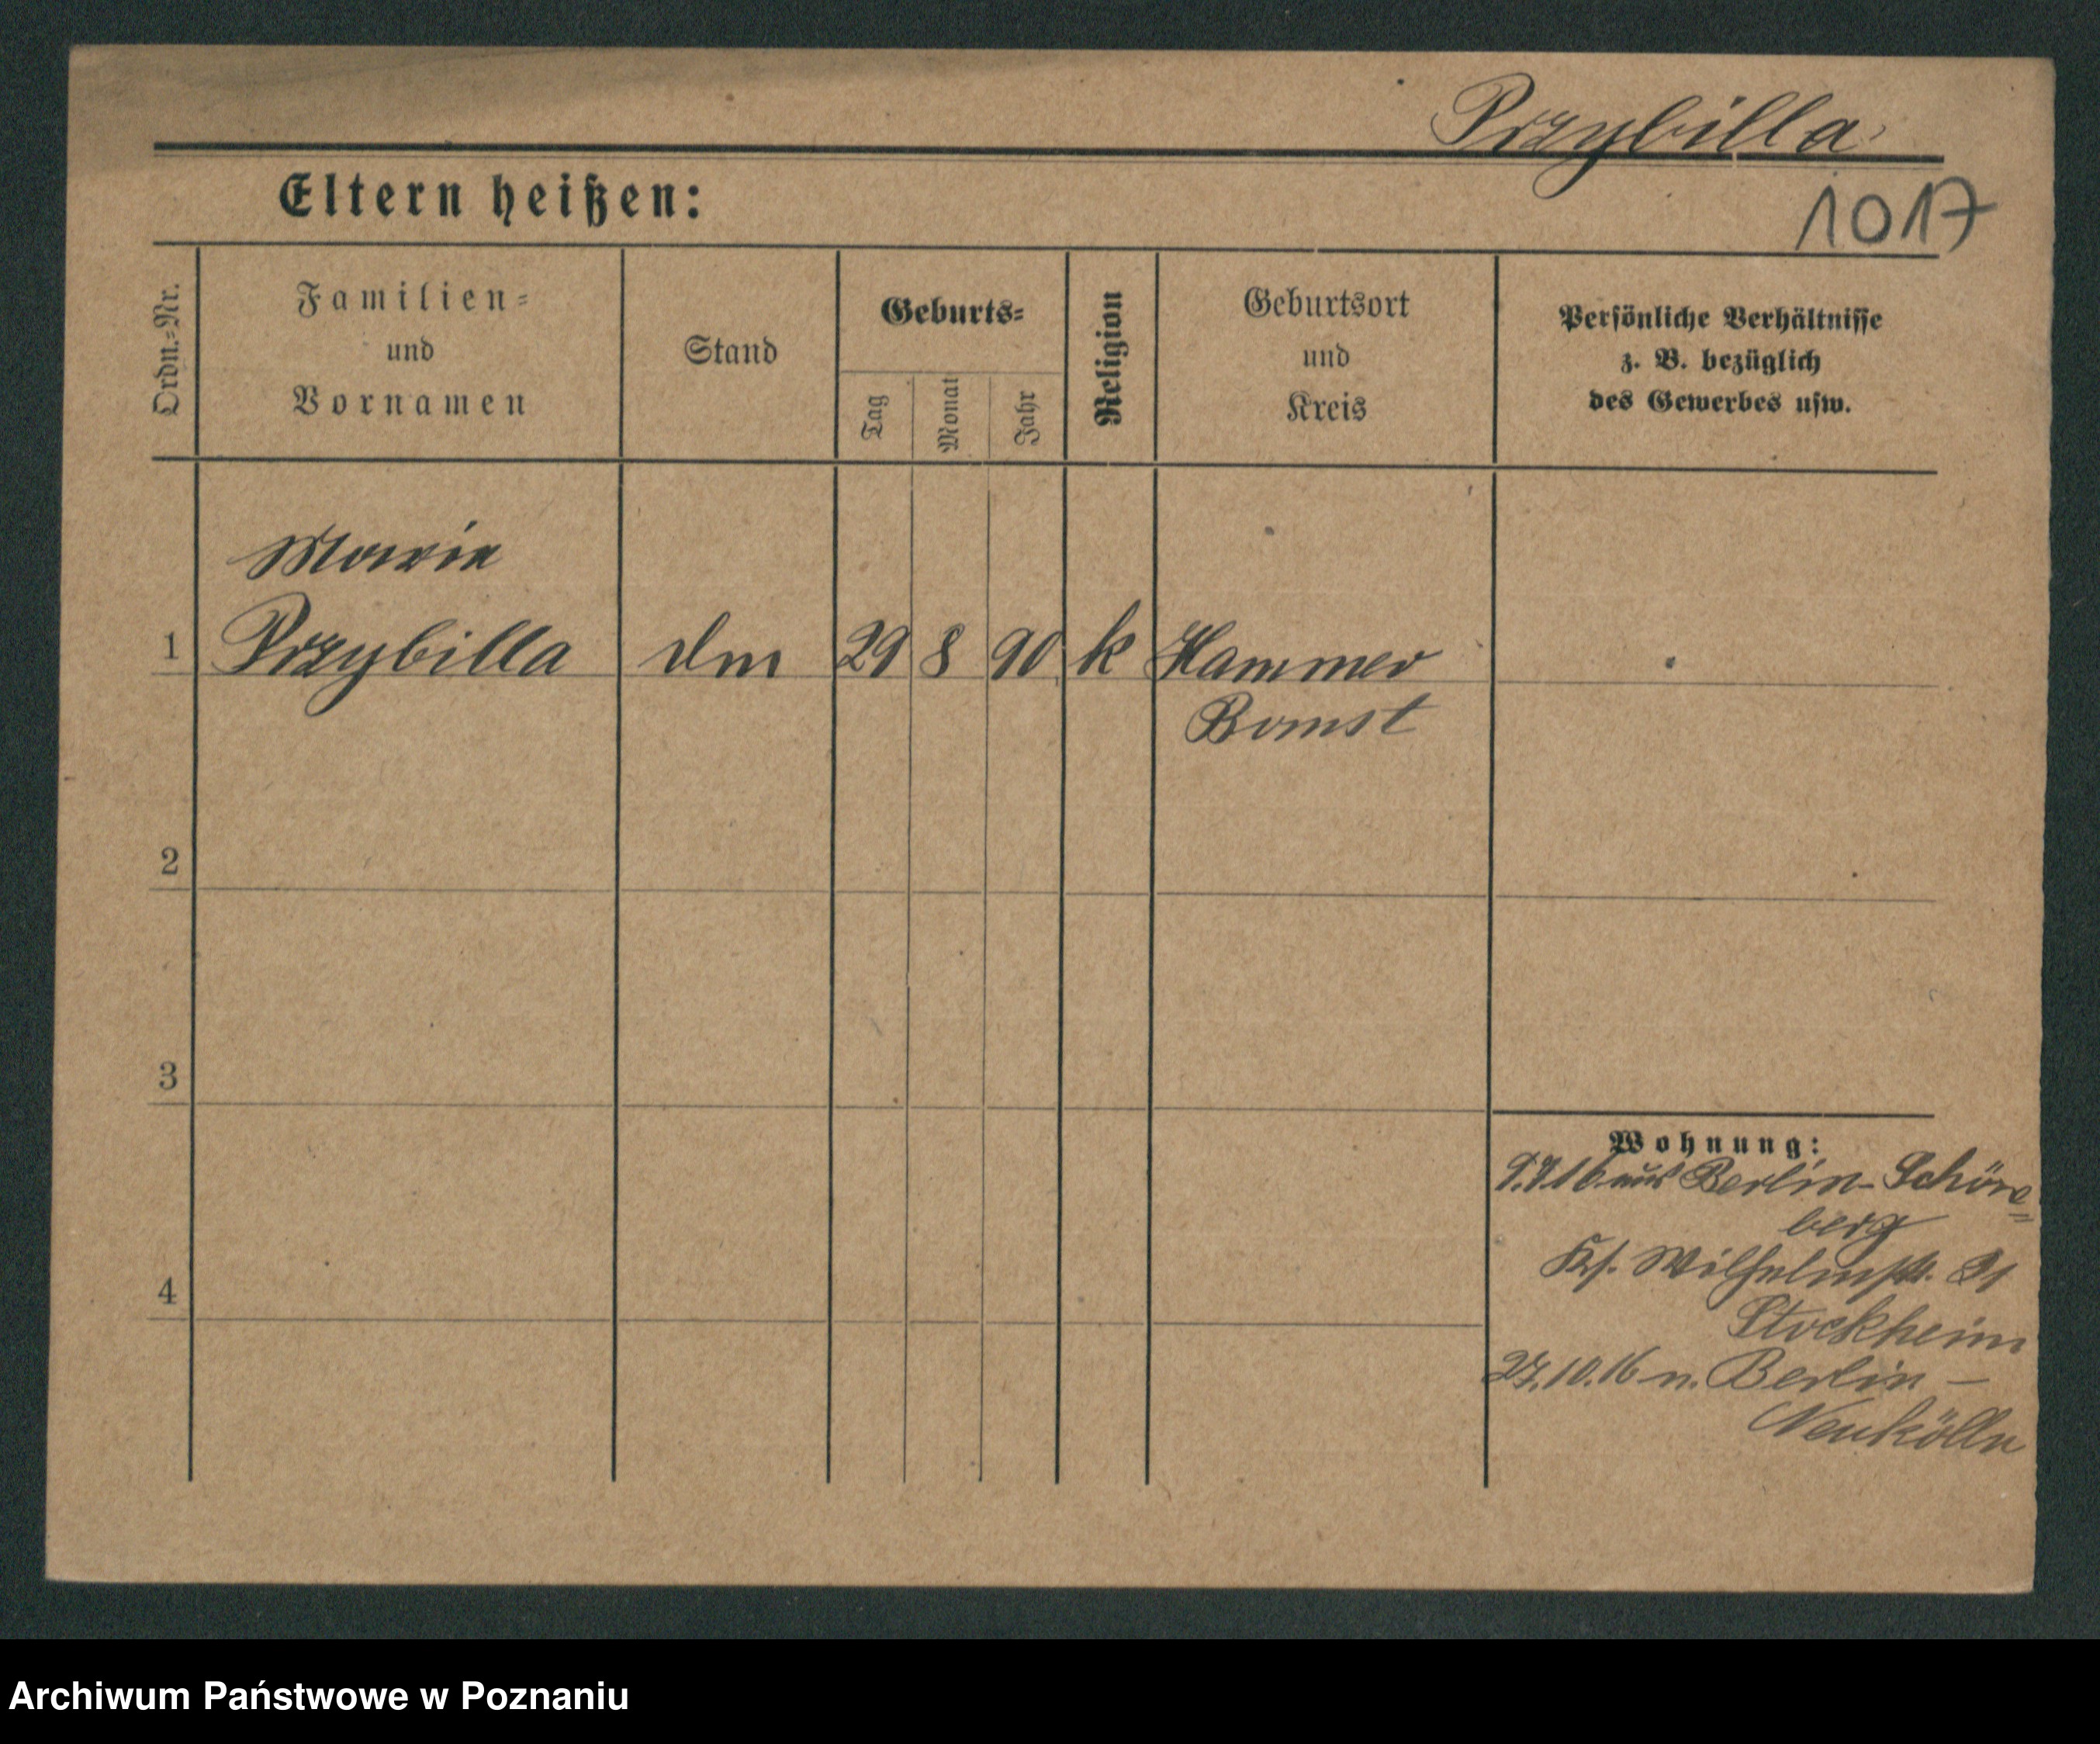 Przybilla
Eltern heißen:
1017
Ordn.=Nr.
Familien=
und
Vornamen
Stand
Geburts=
Tag
Monat
Jahr
Religion
Geburtsort
und
Kreis
Persönliche Verhältnisse
z. B. bezüglich
des Gewerbes usw.
Marie
1 Przybilla Dm 29 8 90 k Hammer
Bomst
2
3
4
Wohnung:
9.9.16 aus Berlin-Schöne=
berg
Wilhelmstr. 21
Stockheim
27.10.16 n. Berlin-
Neukölln
Archiwum Państwowe w Poznaniu